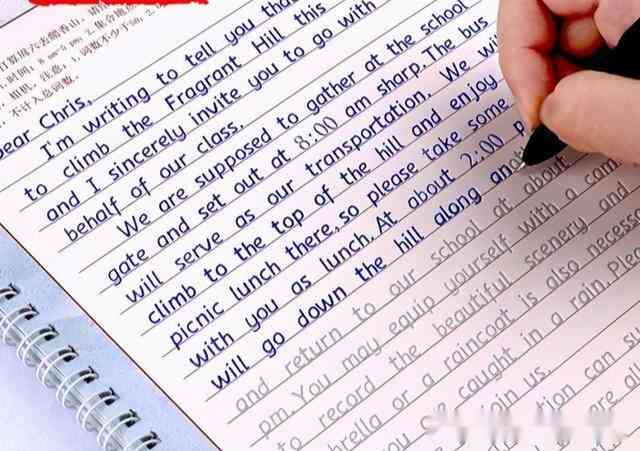 日算周六去爬香山。请你
1. 时间: 8 am-5 pm; 2. 集合地点
相机。注意: 1. 词数不少于50; 2.
不计入总词数。
Dear Chris,
I'm writing to tell you that
to climb the Fragrant Hill this
and I sincerely invite you to go with
behalf of our class.
We are supposed to gather at the school
gate and set out at 8:00 am sharp. The bus
will serve as our transportation. We will
climb to the top of the hill and enjoy
picnic lunch there, so please take some
with you as lunch. At about 2:00 p
will go down the hill along another
and return to our school at about
pm. You may equip yourself with a cam
to record the beautiful scenery and
brella or a raincoat is also necess
you be caught in a rain. Plea
join us.
tion can su
ere all